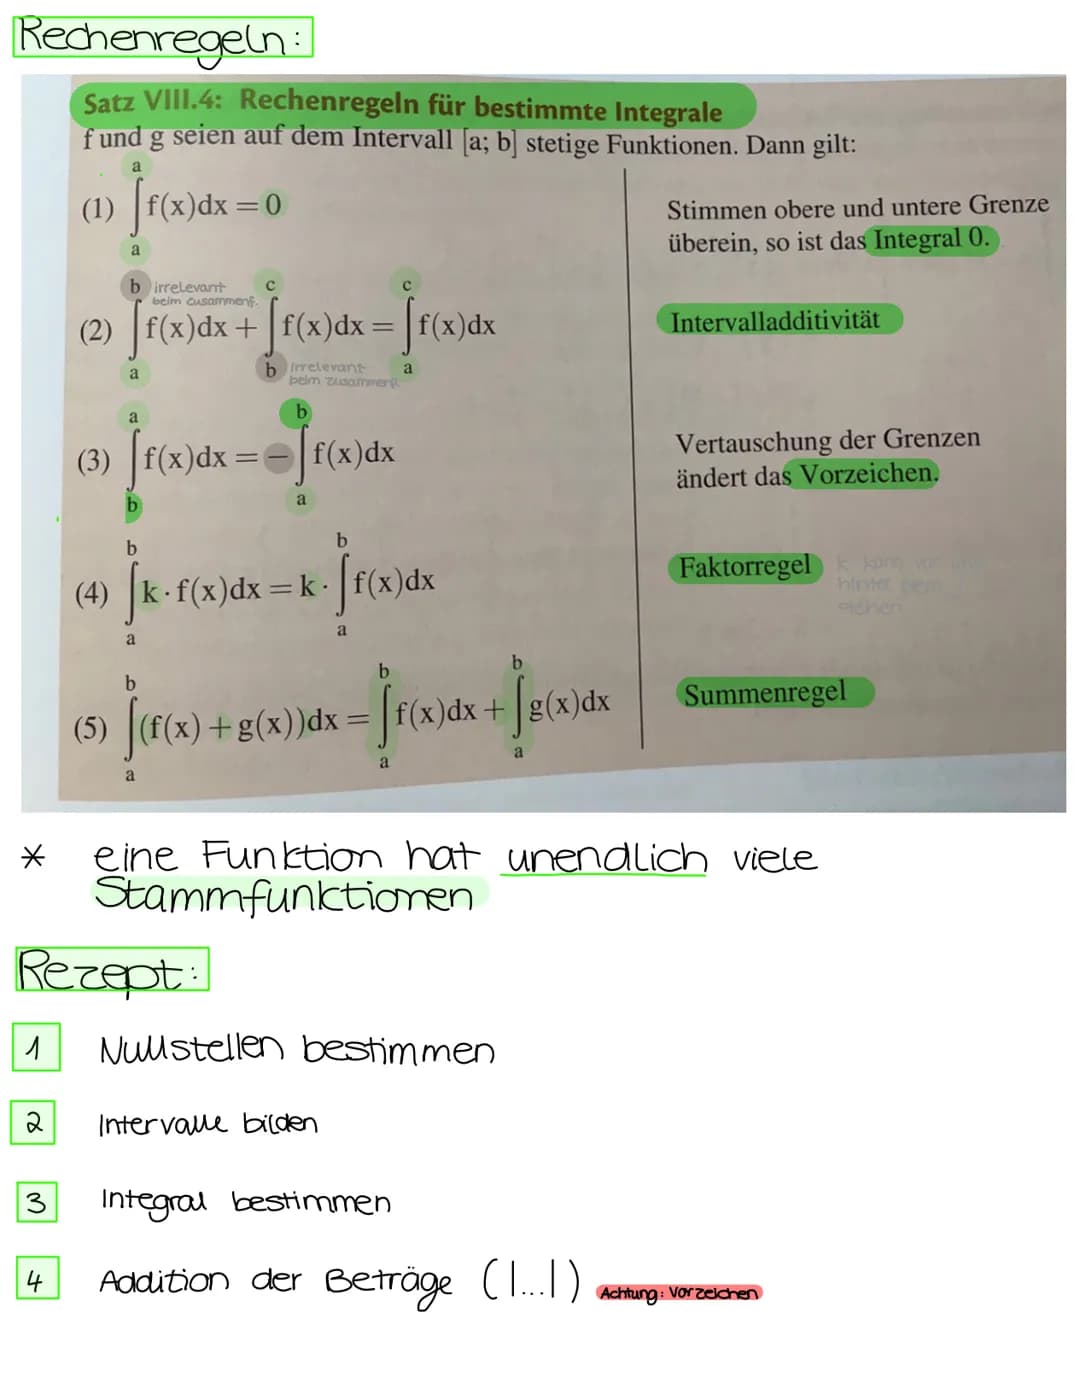 Rechenregeln:
Satz VIII.4: Rechenregeln für bestimmte Integrale
f und g seien auf dem Intervall [a; b] stetige Funktionen. Dann gilt:
a
(1) ∫f(x)dx = 0
a
Stimmen obere und untere Grenze
überein, so ist das Integral 0.
b irrelevant c c
beim zusammenf.
(2) ∫f(x)dx + ∫f(x)dx = ∫f(x)dx
a b irrelevant a
beim zusammenf.
Intervalladditivität
a b
(3) ∫f(x)dx = − ∫f(x)dx
b a
Vertauschung der Grenzen
ändert das Vorzeichen.
b b
(4) ∫k · f(x)dx = k · ∫f(x)dx
a a
Faktorregel k kann vor und
hinter dem
stehen
b b b
(5) ∫(f(x) + g(x))dx = ∫f(x)dx + ∫g(x)dx
a a a
Summenregel
* eine Funktion hat unendlich viele
Stammfunktionen
Rezept:
1 Nullstellen bestimmen
2 Intervalle bilden
3 Integral bestimmen
4 Addition der Beträge (|...|) Achtung: Vorzeichen